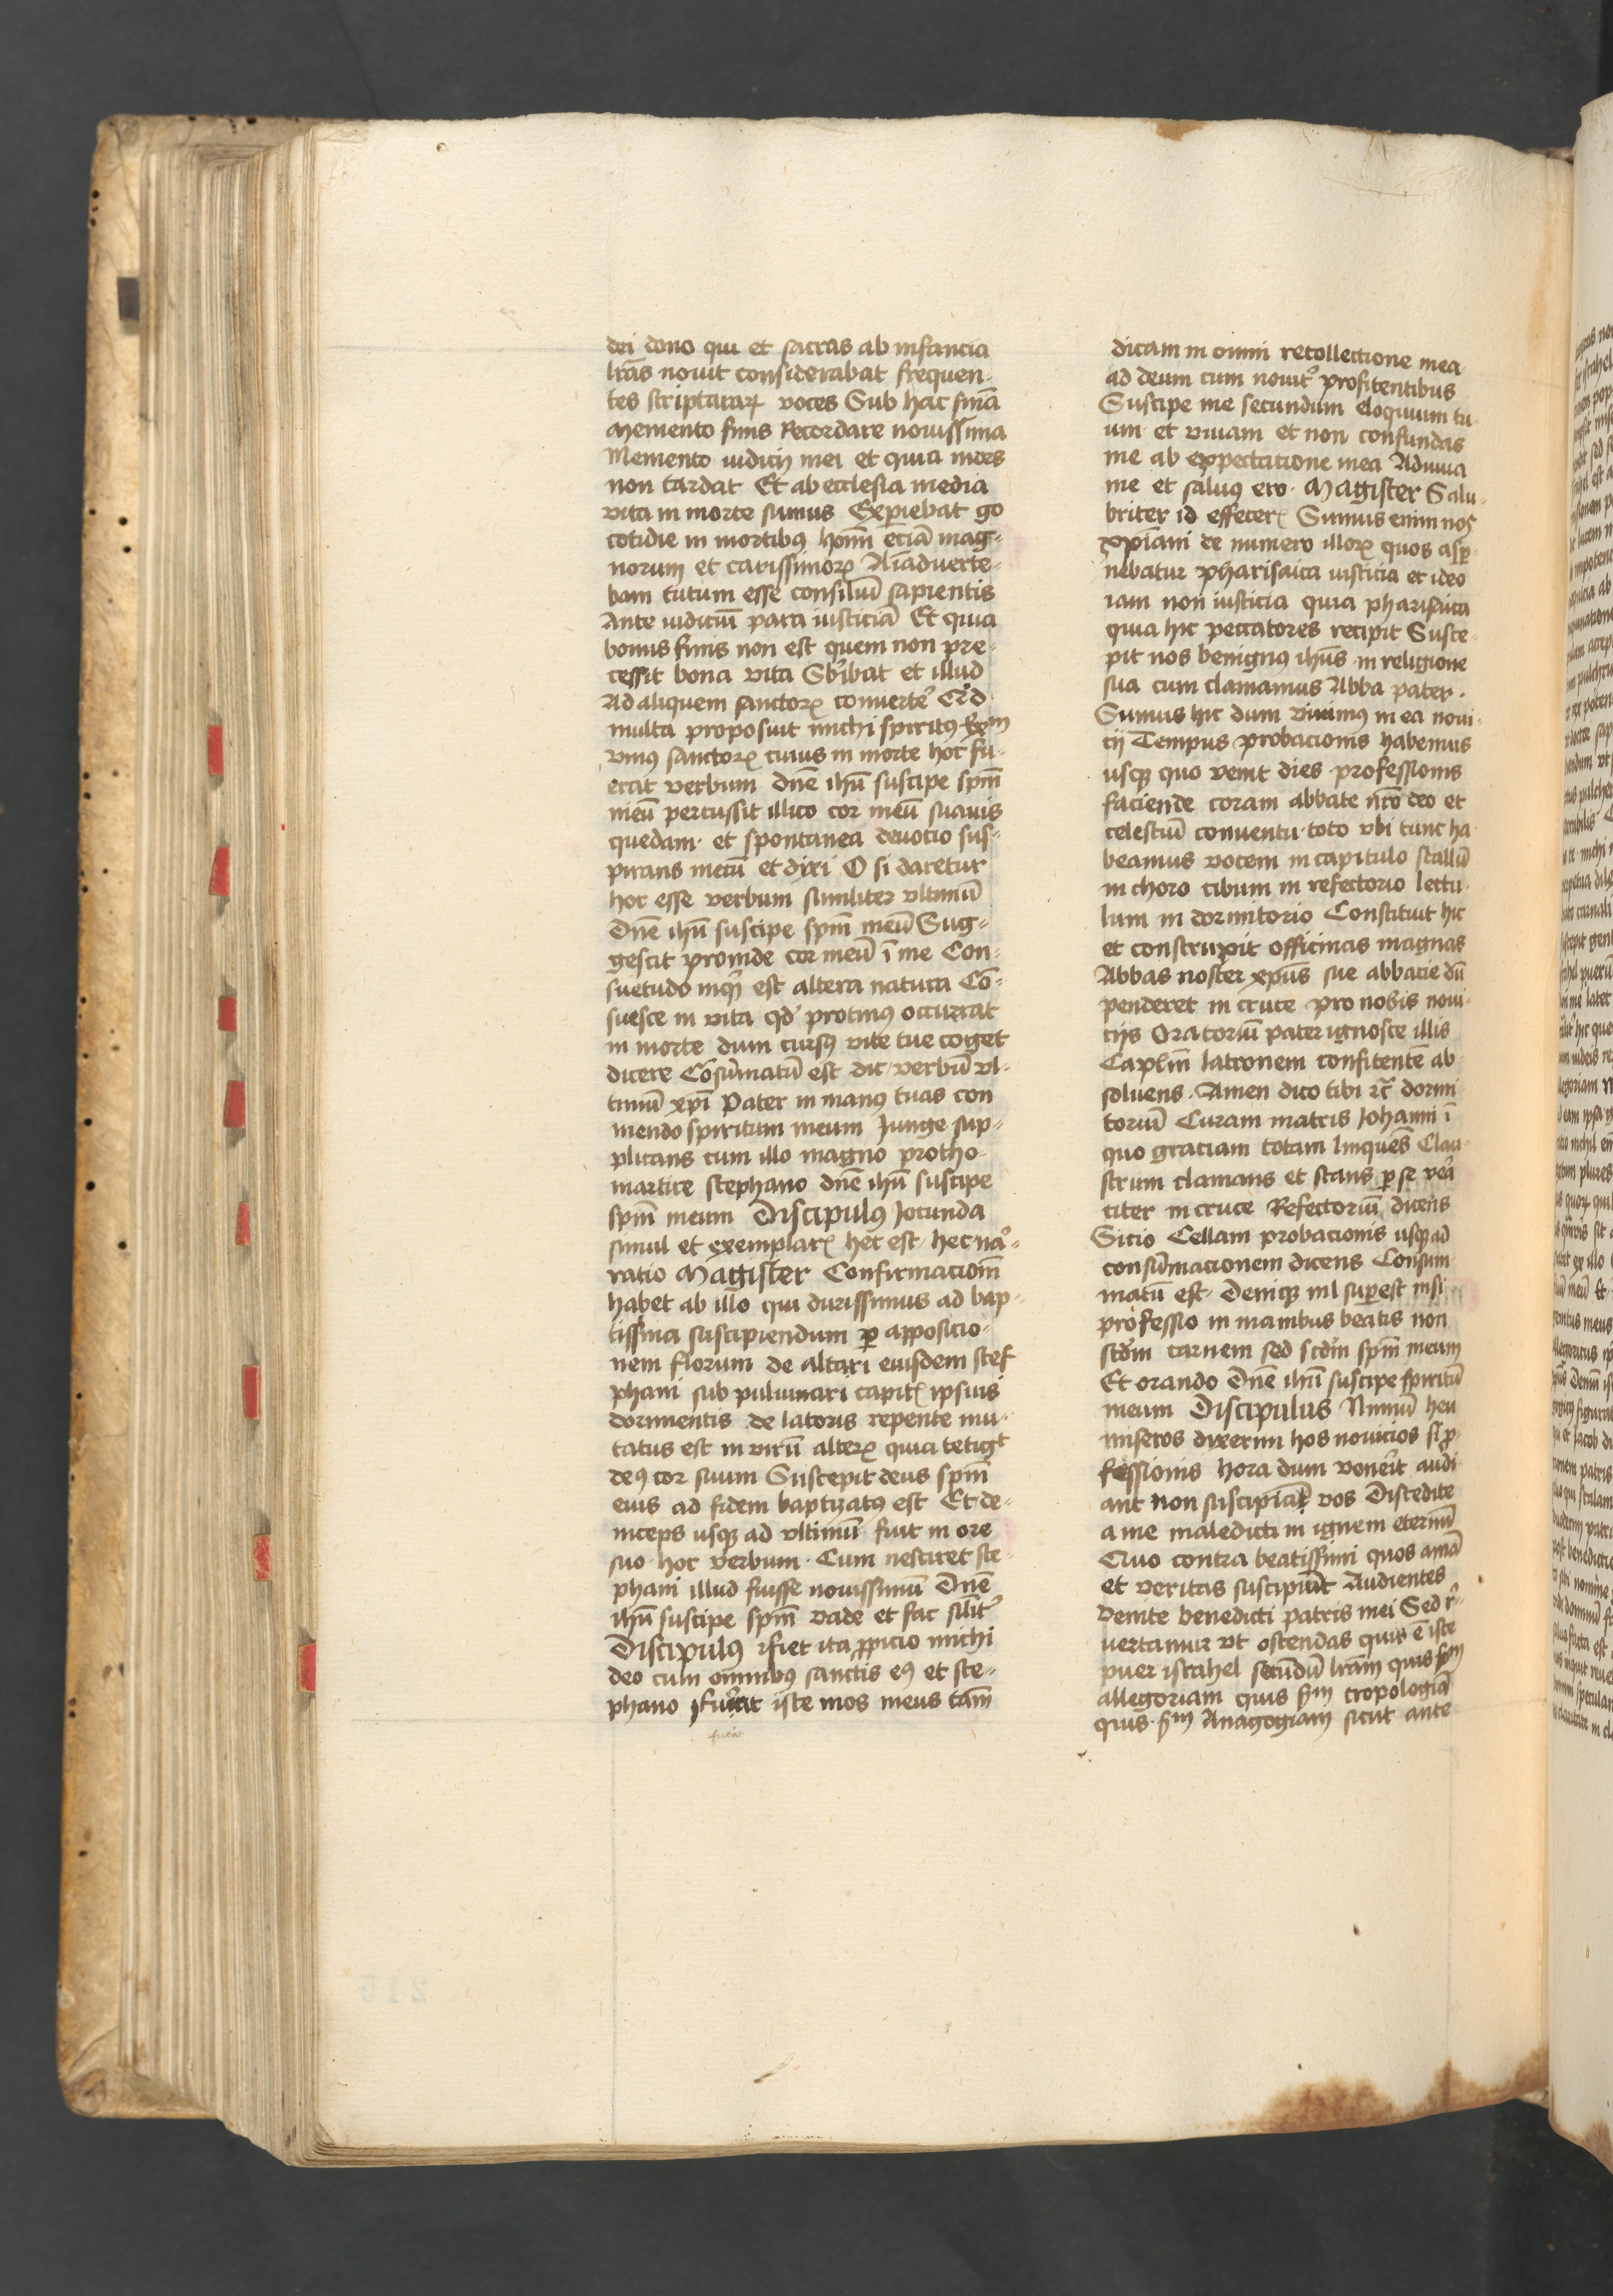 dei dono qui et sacras ab infancia
lr̄as nouit considerabat frequen-
tes scripturarꝝ voces Sub hac for̄ma
Memento finis Recordare nouissima
Memento iudicij mei et quia mors
non tardat Et ab ecclesia media
vita in morte sumus Exꝑiebat go
cotidie in mortibꝫ hoīm eciā mag-
norum et carissimorꝝ Aīaduerte-
bam tutum esse consiliū sapientis
Ante iudiciū para iusticiā Et quia
bonus finis non est quem non pre-
cessit bona vita Sbībat et illud
Ad aliquem sanctorꝝ conuerte
multa proposuit michi spiritꝰ
vniꝰ sanctorꝝ cuius in morte hoc fu-
erat verbum dn̄e ihū suscipe spm̄
meū percussit illico cor meū suauis
quedam et spontanea deuocio sus-
pirans mecū et dixi O si daretur
hoc esse verbum similiter vltimū
Dn̄e ihū suscipe spm̄ meū Sug-
gescit proinde cor meū ī me Con-
suetudo inqͥt est altera natura Cō-
suesce in vita qd̕ protinꝰ occurrat
in morte dum cursꝰ vite tue coget
dicere Cōsūmatū est dic verbū vl-
timū xp̄i Pater in manꝰ tuas con
mendo spiritum meum Junge sup-
plicans cum illo magno protho-
martire stephano dn̄e ihū suscipe
spm̄ meum Discipulꝰ Jocunda
simul et exemplarꝭ hec est hec naͬ-
ratio Magister Confirmacionē
habet ab illo qui durissimus ad bap-
tissma suscipiendum ꝑ apposicio-
nem florum de altari eiusdem stef
phani sub puluinari capitꝭ ipsius
dormientis de latoris repente mu-
tatus est in virū alterꝝ quia tetigt
deꝰ cor suum Suscepit deus spm̄
eius ad fidem baptizatꝰ est Et de-
inceps usqꝫ ad vltimū fuit in ore
suo hoc verbum Cum nesciret ste-
phani illud fuisse nouissimū Dn̄e
ihū suscipe spm̄ vade et fac silīt̕
Discipulꝰ ifiet ita ꝓpicio michi
deo cum omnibꝰ sanctis eꝰ et ste-
phano fuerat iste mos meus tām
fuerat
dicam in omni recollectione mea
ad deum cum nouit̕ profitentibus
Suscipe me secundum eloquium tu-
um et viuam et non confundas
me ab expectatione mea Adiuua
me et saluꝰ ero Magister Salu-
briter id effecerꝭ Sumus enim nos
xpiāni de numero illorꝝ quos asꝑ
nebatur pharisaica iusticia et ideo
iam non iusticia quia pharisaica
quia hic peccatores recipit Susce-
pit nos benignꝰ ihūs in religione
sua cum clamamus Abba pater
Sumus hic dum viuimꝰ in ea noui-
cij Tempus probacionis habemus
usqꝫ quo venit dies professionis
faciende coram abbate nr̄o deo et
celestiū conuentu toto vbi tunc ha
beamus vocem in capitulo stallū
in choro cibum in refectorio lectu-
lum in dormitorio Constituit hic
et construxit officinas magnas
Abbas noster xpūs sue abbacie dū
penderet in cruce pro nobis noui-
cijs Oratoriū pater ignosce illis
Capl̄m latronem confitentē ab
soluens Amen dico tibi rc̄ dormi
toriū Curam matris Johanni ī
quo graciam totam linquens Clau-
strum clamans et stans ꝑ se vera
citer in cruce Refectoriū dicens
Sicio Cellam probacionis usqꝫ ad
consūmacionem dicens Consum
matū est Deniqꝫ nil suꝑest nisi
professio in manibus beatis non
scd̄m carnem sed scd̄m spm̄ meum
Et orando Dn̄e ihū suscipe spiritū
meum Discipulus Nimiū heu
miseros dixerim hos nouicios si ꝓ-
fessionis hora dum venerit audi
ant non suscipiāt vos Discedite
a me maledicti in ignem eternū
Quo contra beatissimi quos amā
et veritas suscipiūt Audientes
Venite benedicti patris mei Sed r̕
uertamur vt ostendas quis ē iste
puer israhel secūdū lr̄am quis
allegoriam quis tropologiā
quis Anagogiam sicut ante